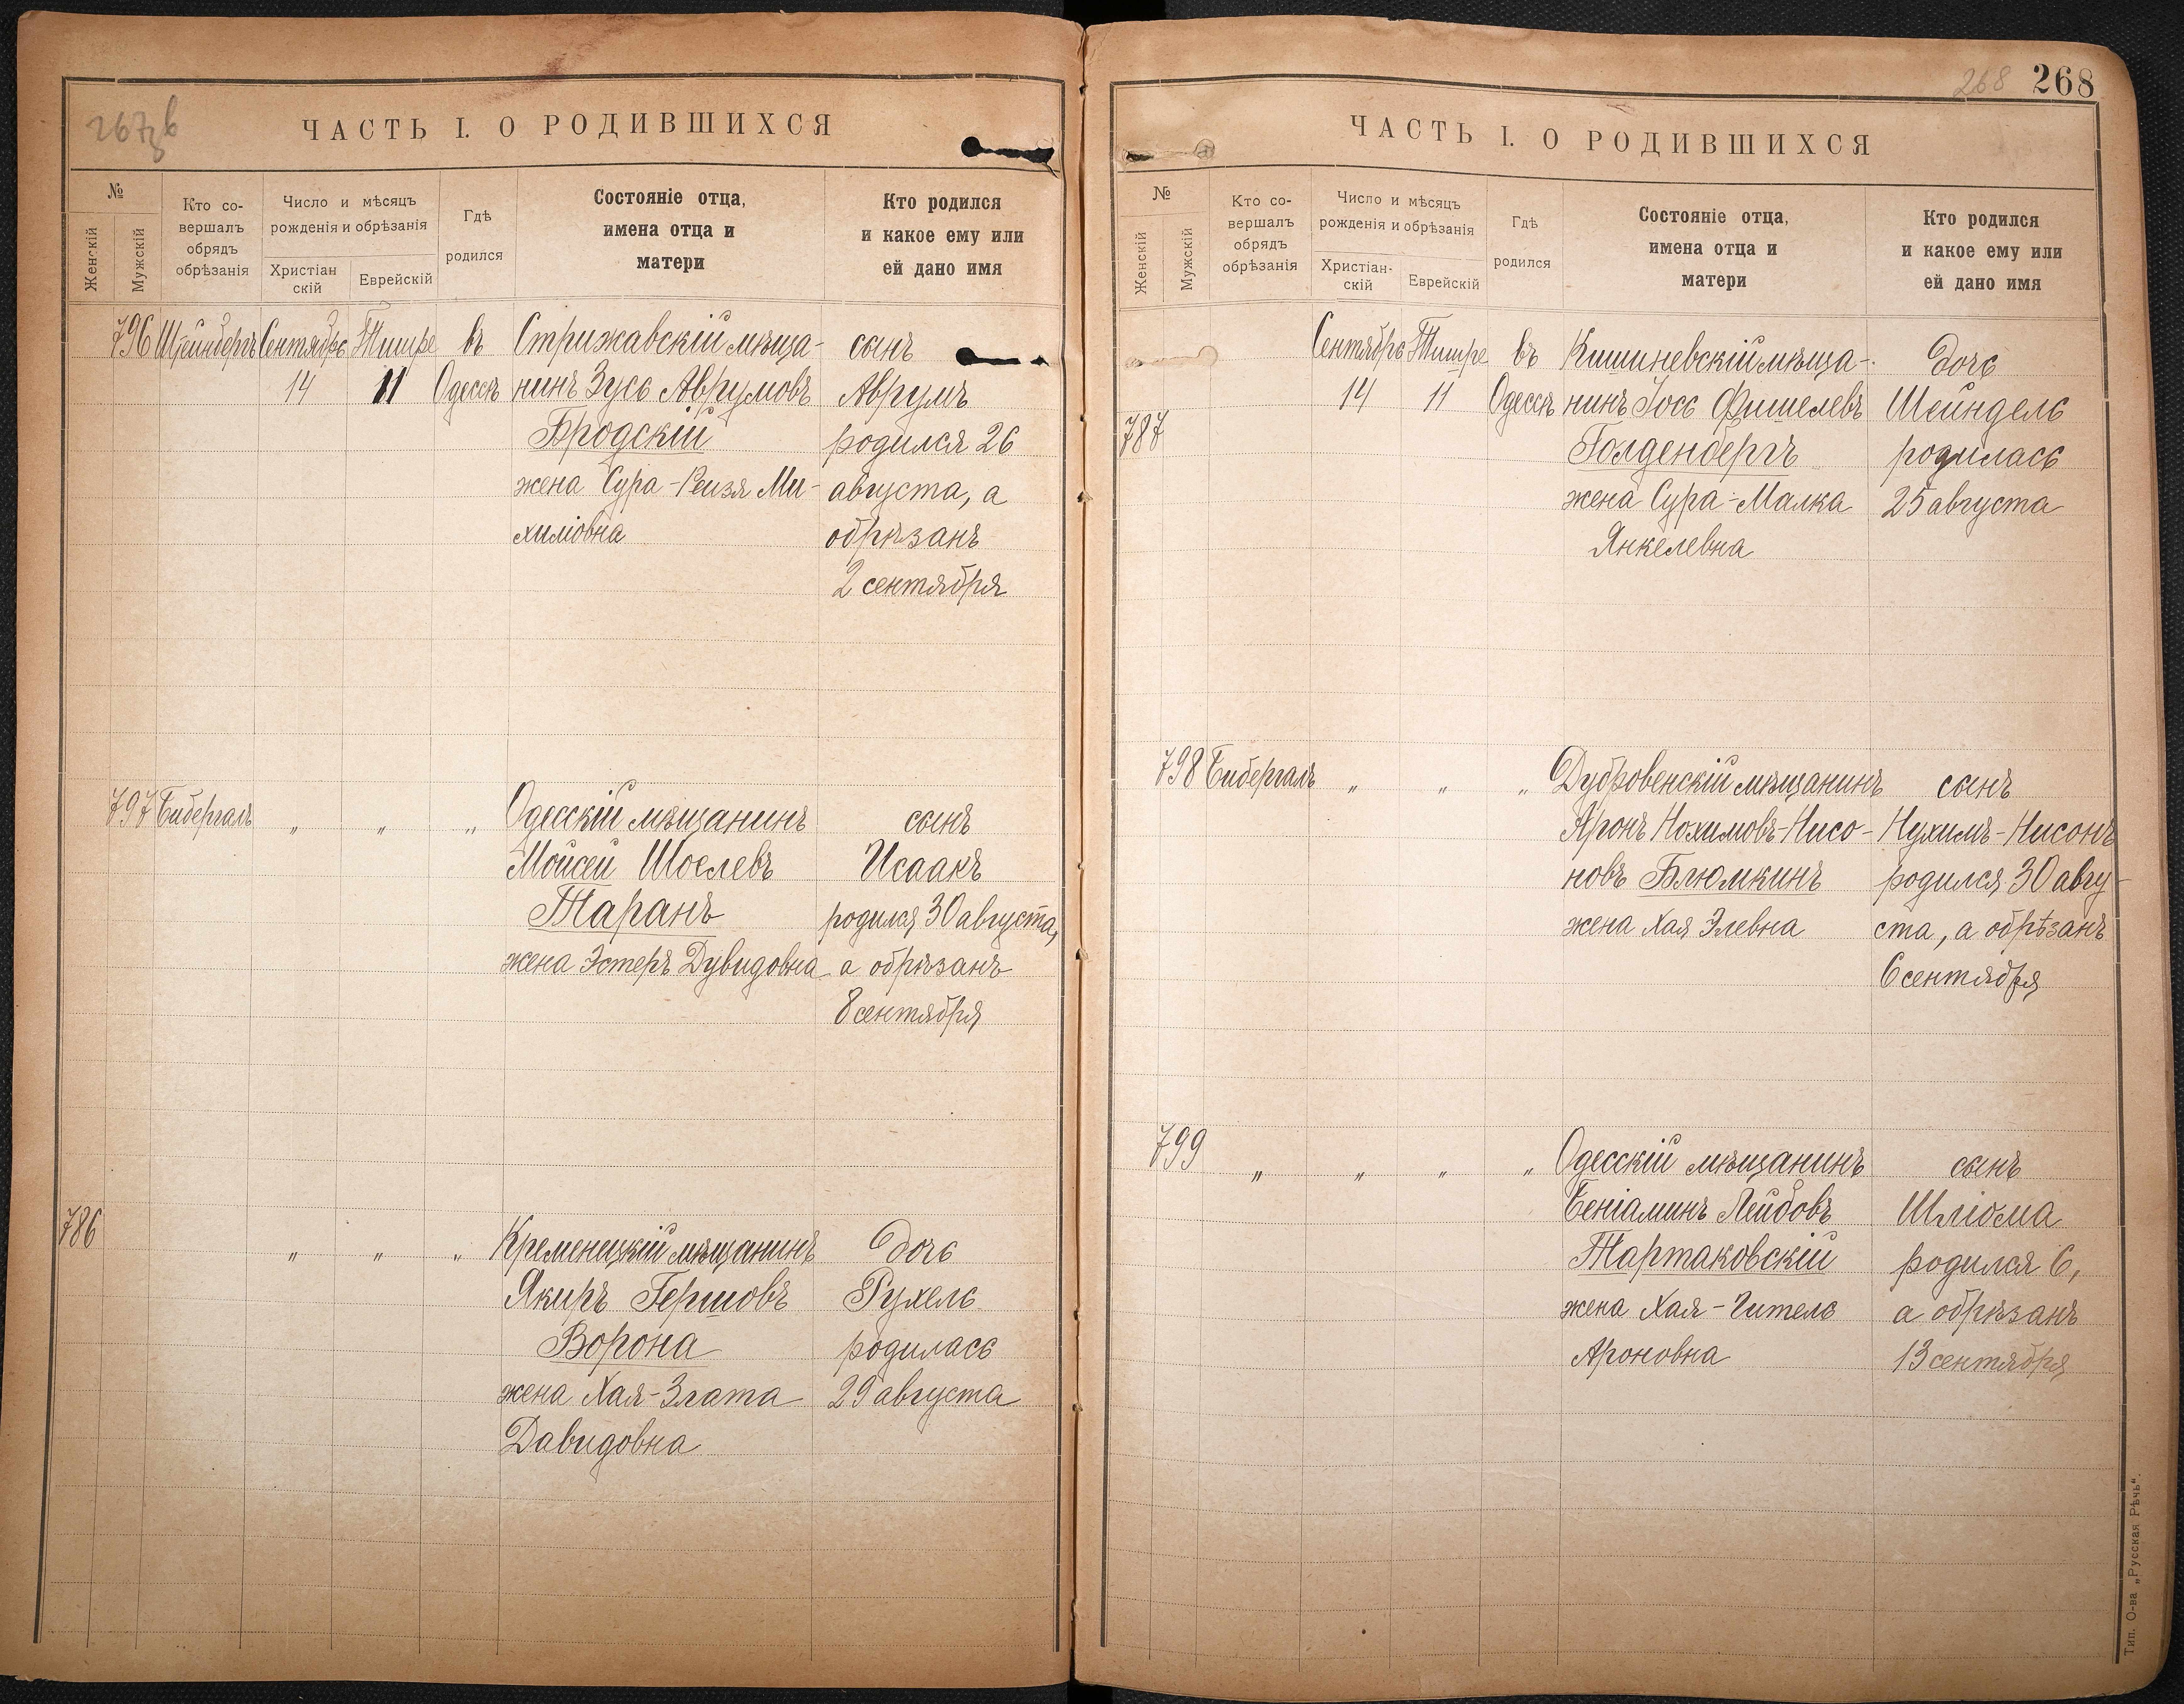 267 зв
ЧАСТЬ I. О РОДИВШИХСЯ
№
Женскій
Мужскій
Кто со-
вершалъ
обрядъ
обрѣзанія
Число и мѣсяцъ
рожденія и обрѣзанія
Христіан
скій
Еврейскій
Гдѣ
родился
Состояніе отца,
имена отца и
матери
Кто родился
и какое ему или
ей дано имя
796 Штейнбергъ Сентябрь Тишре въ Стрижавскій мѣща- сынъ
14 11 Одессѣ нинъ Зусь Аврумовъ Аврумъ
Бродскій родился 26
жена Сура-Рейзя Ми- августа, а
хиліовна обрѣзанъ
2 сентября
797 Бибергалъ " " " Одесскій мѣщанинъ сынъ
Мойсей Шоелевъ Исаакъ
Таранъ родился 30 августа,
жена Эстеръ Дувидовна а обрѣзанъ
8 сентября
786 " " " Кременецкій мѣщанинъ дочь
Якиръ Гершовъ Рухель
Ворона родилась
жена Хая-Злата 29 августа
Давидовна
268 268
ЧАСТЬ I. О РОДИВШИХСЯ
№
Женскій
Мужскій
Кто со-
вершалъ
обрядъ
обрѣзанія
Число и мѣсяцъ
рожденія и обрѣзанія
Христіан-
скій
Еврейскій
Гдѣ
родился
Состояніе отца,
имена отца и
матери
Кто родился
и какое ему или
ей дано имя
Сентябрь Тишре въ Кишиневскій мѣща- дочь
14 11 Одессѣ нинъ Іось Фишелевъ Шейндель
787 Голденбергъ родилась
жена Сура-Малка 25 августа
Янкелевна
798 Бибергалъ " " " Дубровенскій мѣщанинъ сынъ
Аронъ Нохимовъ-Нисо- Нухимъ-Нисонъ
новъ Блюмкинъ родился 30 авгу-
жена Хая Элевна ста, а обрѣзанъ
6 сентября
799 " " " " Одесскій мѣщанинъ сынъ
Беніаминъ Лейбовъ Шліома
Тартаковскій родился 6,
жена Хая-Гитель а обрѣзанъ
Ароновна 13 сентября
Тип. О-ва „Русская Рѣчь“.